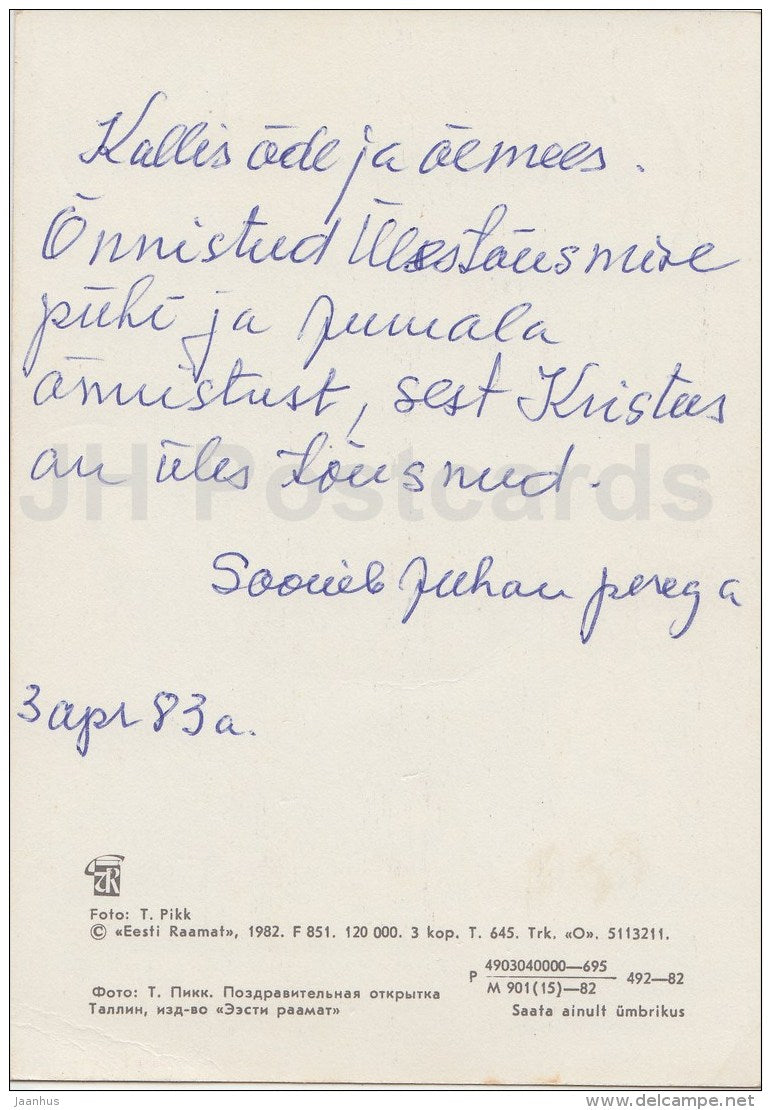 Kallis õde ja õemees.
Õnnistud Ülestõusmise
pühi ja Jumala
õnnistust, sest Kristus
on üles tõusnud.
Soovib Juhan perega
3 apr 83 a.
JH Postcards
Foto: T. Pikk
© «Eesti Raamat», 1982. F 851. 120 000. 3 kop. T. 645. Trk. «O». 5113211.
Фото: Т. Пикк. Поздравительная открытка
Таллин, изд-во «Ээсти раамат»
Р 4903040000—695
М 901(15)—82 492—82
Saata ainult ümbrikus
Jaanhus
www.delcampe.net